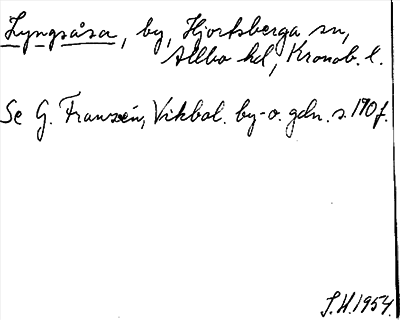 Lyngsåsa, by, Hjortsberga sn,
Allbo hd, Kronob. l.
Se G. Franzén, Vikbol. by- o. gdn. s. 170 f.
S.H. 1954.